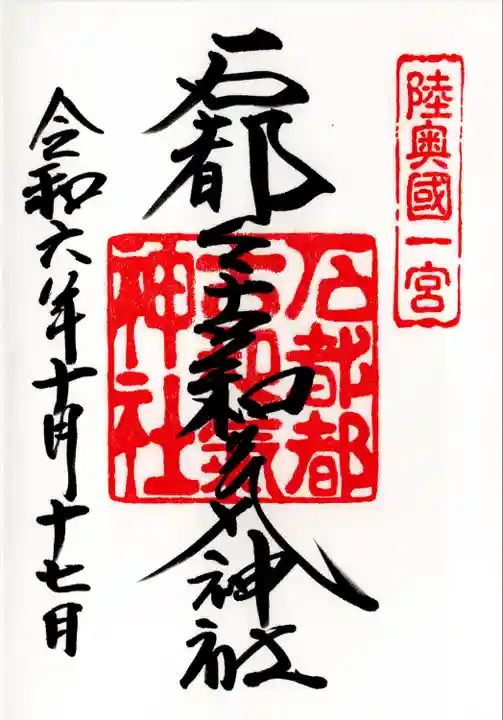 陸奥國一宮
石都々古和氣神社
石都都
古和氣
神社
令和六年十月十七日